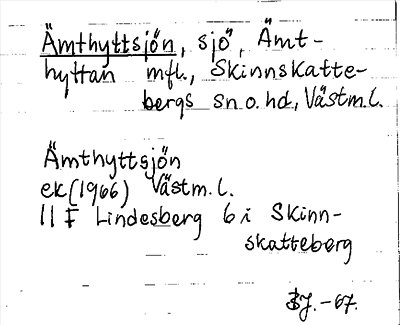 Ämthyttsjön, sjö, Ämt-
hyttan mfl., Skinnskatte-
bergs sn o. hd., Västm.l.
Ämthyttsjön
ek (1966) Västm.l.
11 F Lindesberg 6 i Skinn-
skatteberg
BJ. -67.